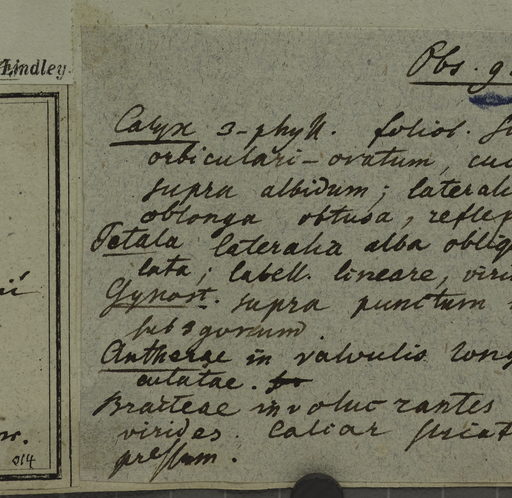 Lindley.
Obs. g.
Calyx 3-phyll. foliol.
orbiculari-ovatum, cuc
supra albidum; laterali
oblonga obtusa, reflex
Petala lateralia alba obliq
lata; labell. lineare, viri
Gynost. supra punctum
sub 3 gonum
Antherae in valvulis long
culatae.
Bracteae involucrantes
virides. Calcar
pressum.
014